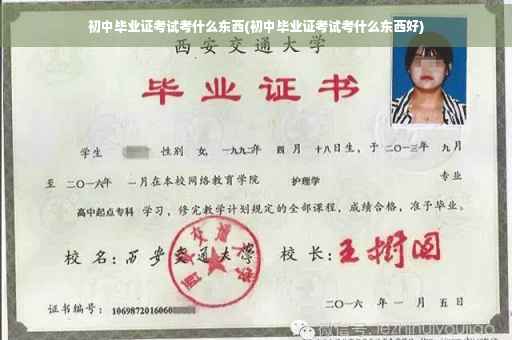 初中毕业证考试考什么东西(初中毕业证考试考什么东西好)
西安交通大学
毕业证书
学生 性别 女, 一九九二年 四 月 十八日生, 于二〇一三年 九月
至 二〇一六年 一月在本校网络教育学院 护理学 专业
高中起点专科 学习, 修完教学计划规定的全部课程, 成绩合格, 准予毕业。
校 名: 西安交通大学 校 长: 王树国
证书编号: 1069872016060
二〇一六 年 一 月 五 日
微信号: jiezhinuiyoujiao